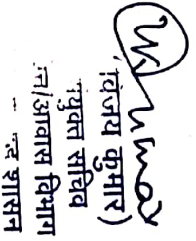 (विजय कुमार)
युक्त सचिव
न/आवास विभाग
शासन